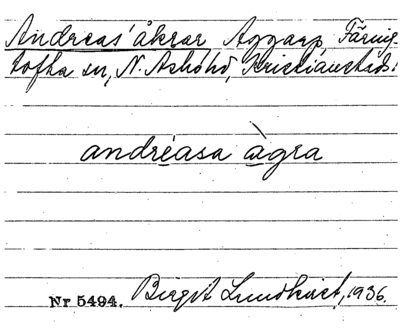 Andreas' åkrar Aggarp, Färing-
tofta sn, N. Åsbo hd, Kristianstads:
andréasa àgra
Nr 5494. Birgit Lundkvist, 1936.